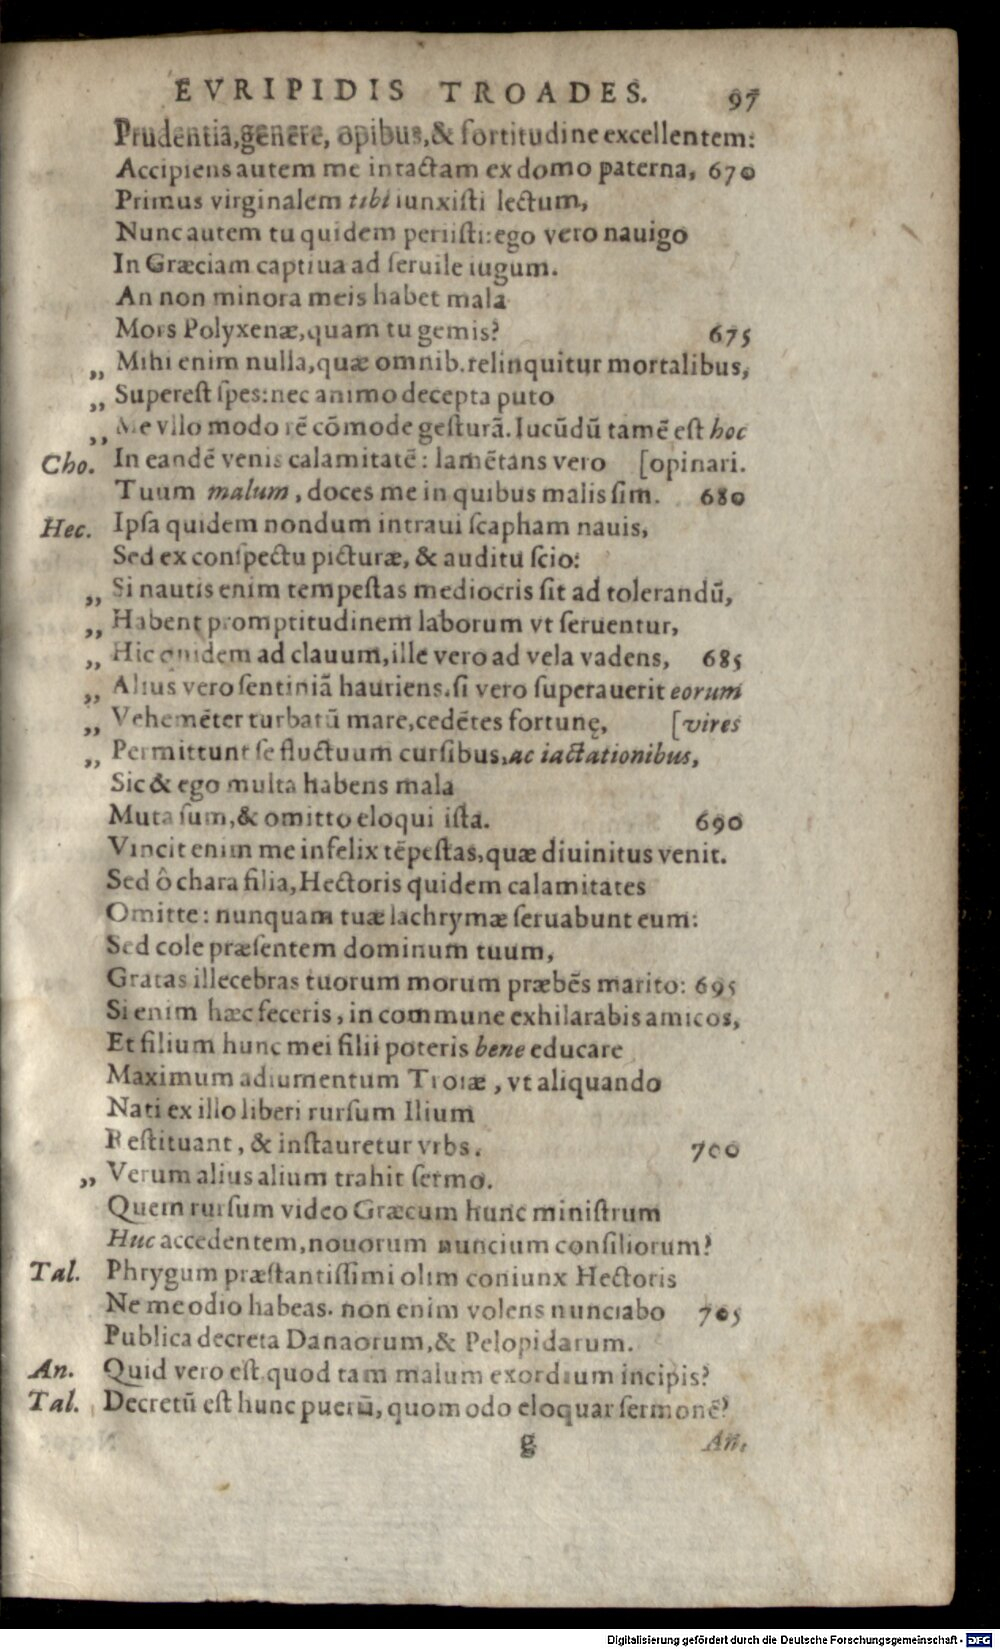 EVRIPIDIS TROADES. 97
Prudentia, genere, opibus, & fortitudine excellentem:
Accipiens autem me intactam ex domo paterna, 670
Primus virginalem tibi iunxiſti lectum,
Nunc autem tu quidem periiſti: ego vero nauigo
In Græciam captiua ad ſeruile iugum.
An non minora meis habet mala
Mors Polyxenæ, quam tu gemis? 675
„ Mihi enim nulla, quæ omnib. relinquitur mortalibus,
„ Supereſt ſpes: nec animo decepta puto
„ Me vllo modo rē cōmode geſturā. Iucūdū tamē eſt hoc
Cho. In eandē venis calamitatē: lamētans vero [opinari.
Tuum malum, doces me in quibus malis ſim. 680
Hec. Ipſa quidem nondum intraui ſcapham nauis,
Sed ex conſpectu picturæ, & auditu ſcio:
„ Si nautis enim tempeſtas mediocris ſit ad tolerandū,
„ Habent promptitudinem laborum vt ſeruentur,
„ Hic quidem ad clauum, ille vero ad vela vadens, 685
„ Alius vero ſentiniā hauriens. ſi vero ſuperauerit eorum
„ Vehemēter turbatū mare, cedētes fortunę, [vires
„ Permittunt ſe fluctuum curſibus, ac iactationibus,
Sic & ego multa habens mala
Muta ſum, & omitto eloqui iſta. 690
Vincit enim me infelix tēpeſtas, quæ diuinitus venit.
Sed ô chara filia, Hectoris quidem calamitates
Omitte: nunquam tuæ lachrymæ ſeruabunt eum:
Sed cole præſentem dominum tuum,
Gratas illecebras tuorum morum præbēs marito: 695
Si enim hæc feceris, in commune exhilarabis amicos,
Et filium hunc mei filii poteris bene educare
Maximum adiumentum Troiæ, vt aliquando
Nati ex illo liberi rurſum Ilium
Reſtituant, & inſtauretur vrbs. 700
„ Verum alius alium trahit ſermo.
Quem rurſum video Græcum hunc miniſtrum
Huc accedentem, nouorum nuncium conſiliorum?
Tal. Phrygum præſtantiſſimi olim coniunx Hectoris
Ne me odio habeas. non enim volens nunciabo 705
Publica decreta Danaorum, & Pelopidarum.
An. Quid vero eſt quod tam malum exordium incipis?
Tal. Decretū eſt hunc puerū, quomodo eloquar ſermonē?
g An.
Digitalisierung gefördert durch die Deutsche Forschungsgemeinschaft - DFG